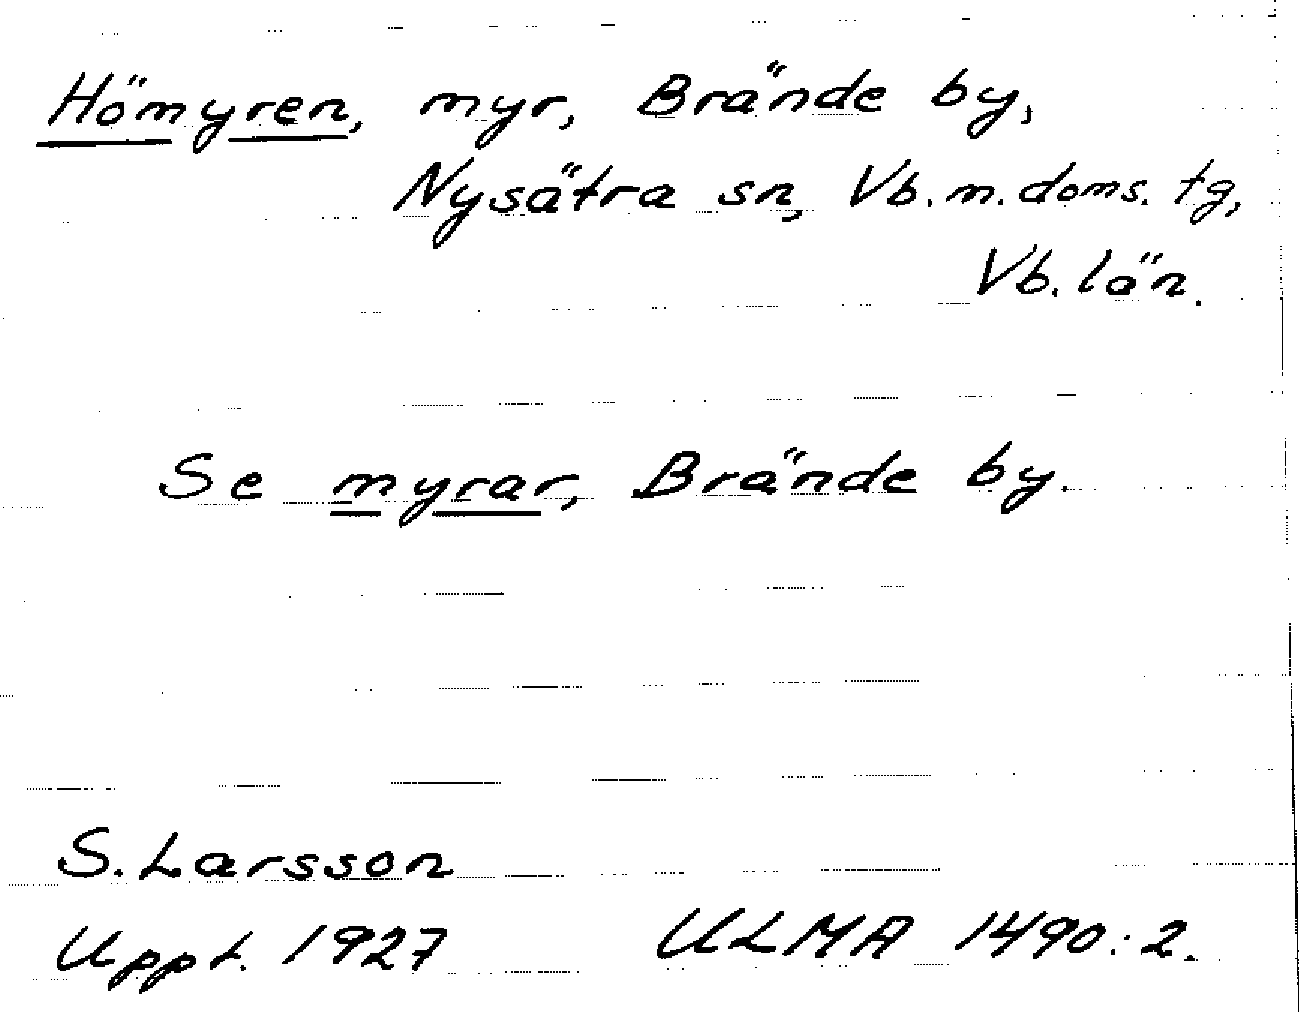 Hömyren, myr, Brände by,
Nysätra sn, Vb. m. doms. tg,
Vb. län.
Se myrar, Brände by.
S. Larsson
Uppt. 1927 ULMA 1490:2.